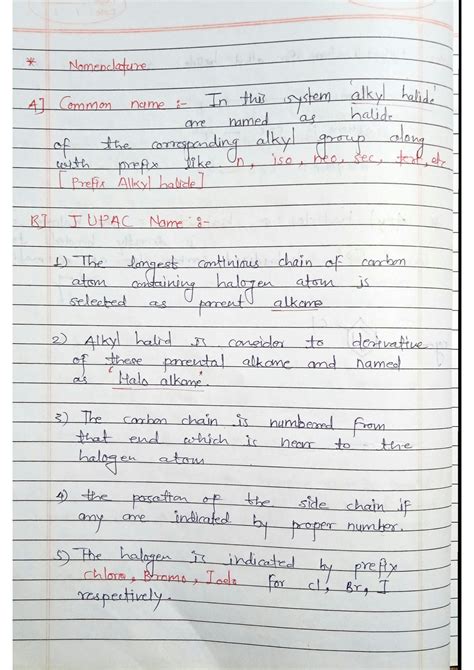 * Nomenclature
A] Common name :- In this system 'alkyl halide'
are named as halide
of the corrosponding alkyl group along
with prefix like n, iso, neo, sec, tert, etc
[Prefix Alkyl halide]
B] IUPAC Name :-
1) The longest continious chain of carbon
atom containing halogen atom is
selected as parent alkane
2) Alkyl halid is consider to derivative
of these parental alkane and named
as "Halo alkane".
3) The carbon chain is numbered from
that end which is near to the
halogen atom
4) the position of the side chain if
any are indicated by proper number.
5) The halogen is indicated by prefix
Chloro, Bromo, Iodo for Cl, Br, I
respectively.